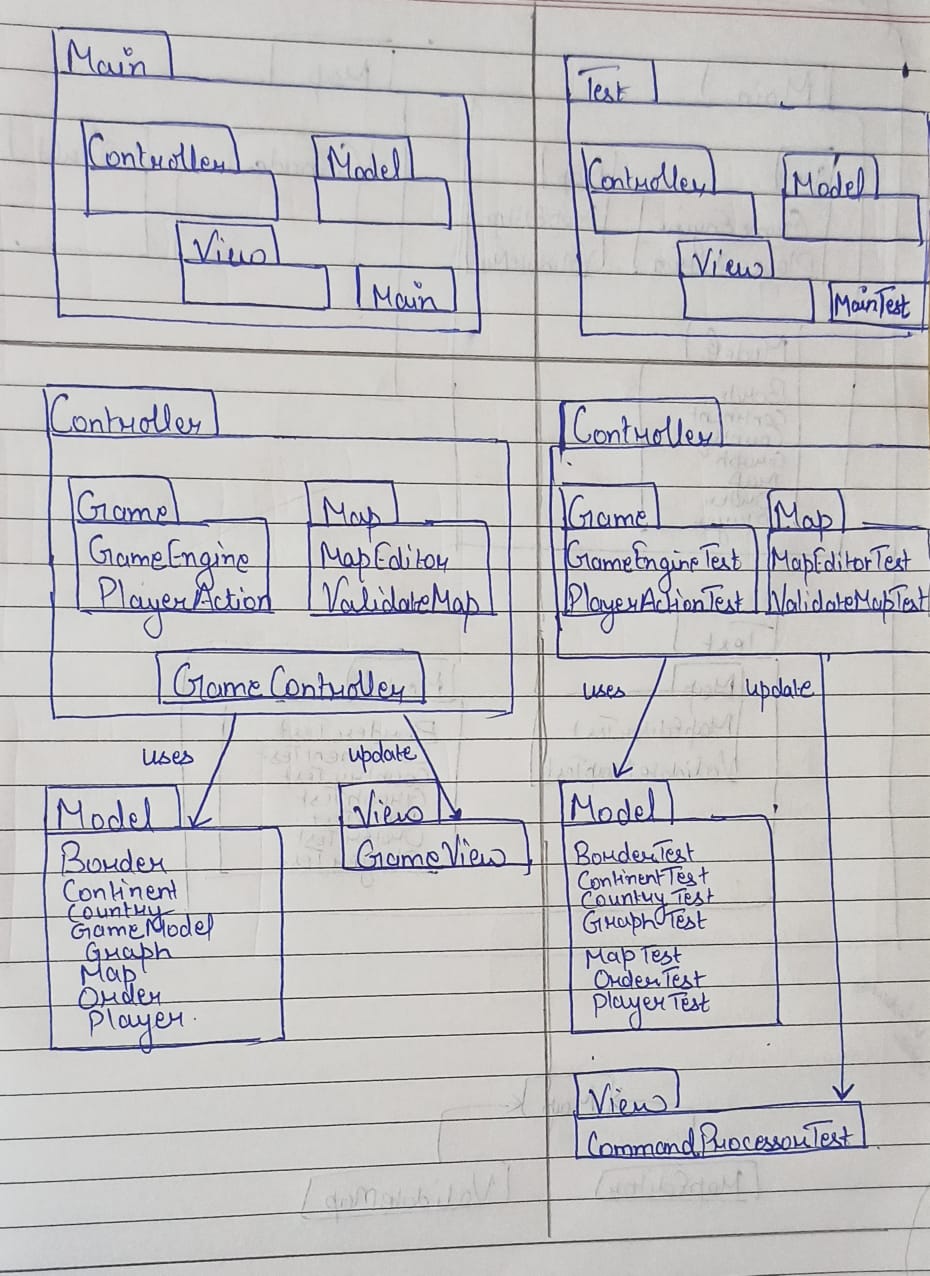 Main
Controller
Model
View
Main
Test
Controller
Model
View
MainTest
Controller
Game
GameEngine
PlayerAction
Map
MapEditor
ValidateMap
GameController
uses
update
Model
Border
Continent
Country
GameModel
Graph
Map
Order
Player.
View
GameView
Controller
Game
GameEngineTest
PlayerActionTest
Map
MapEditorTest
ValidateMapTest
uses
update
Model
BorderTest
ContinentTest
CountryTest
GraphTest
MapTest
OrderTest
PlayerTest
View
CommandProcessorTest